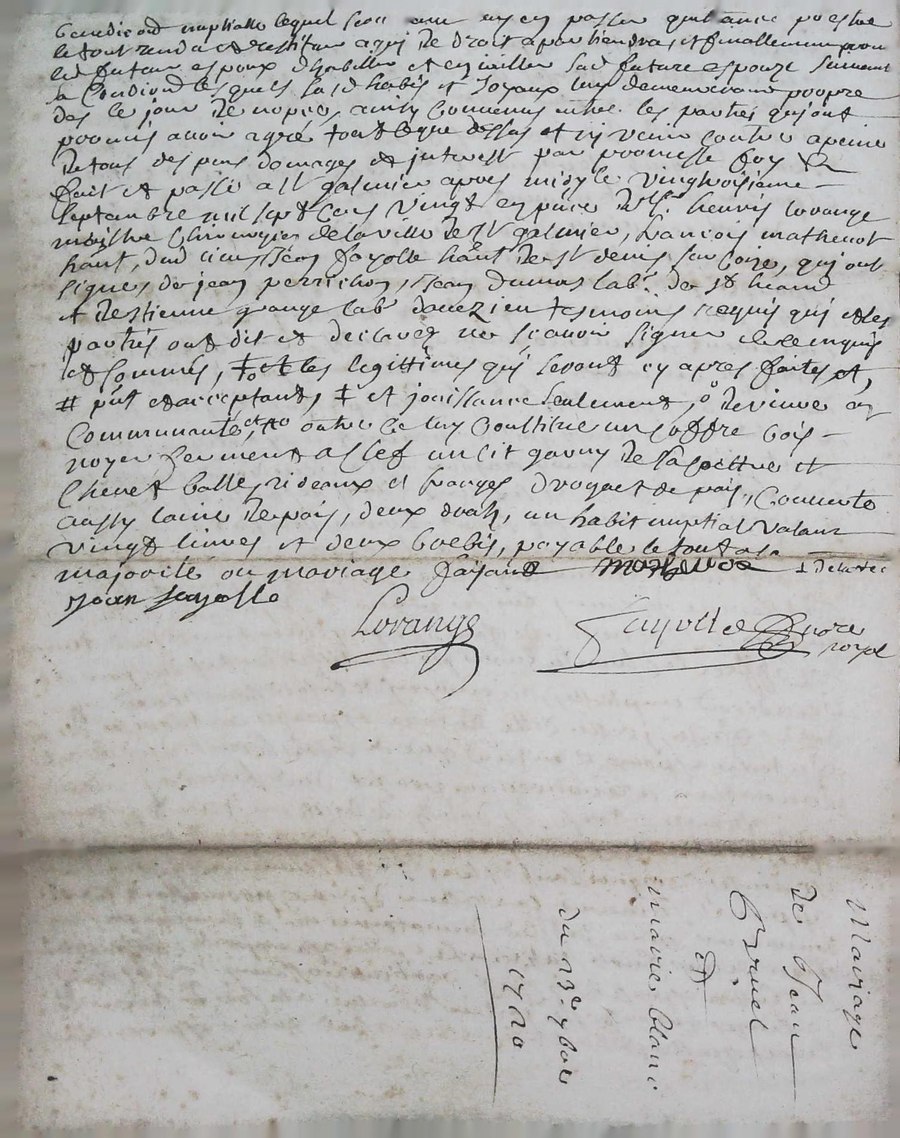 benediction nuptialle lequel sera en passer quittance pu estre
le tout rendu et restitue a qui de droit apartiendra, et finallement
led futur espoux d'habiller et enjoiller sad future espouze suivant
sa condition lesquels habis et joyaux luy demeureront propre
des le jour de nopces, ainsy convenus entre les parties qui ont
promis avoir agreé tout ce que dessus et ny venir contre a peine
de tous despens domages et interest par promesse foy &
fait et passé a st galmier apres midy le vingtroisieme
septambre mil sept cens vingt en pñce de henris lorange
maistre chirurgien de la ville de st galmier, francois mathevot
hānt, dud lieu Jean fayolle hānt de st denis sur coire, qui ont
signes, de jean perrichon, Jean dumas lab. de st
et destienne grange lab temoins requis qui et les
parties ont dit et declarez ne scavoir signer de ce enquis
et sommés, ‡ et les legittimes qui seront cy apres faites et,
# pñt et acceptant, ‡ et jouissance seulement, o de vivre en
communauté, outre ce luy constitue un coffre bois
noyer fermant a clef un lit garny de sa coittre et
chevet balle, rideaux et franges droguet de païs, couverte
aussy laine de païs, deux draps, un habit nuptial valeur
vingt livres et deux brebis, payable le tout a sa
majorité ou mariage fayard mathevot
Jean fayolle
Lorange
Fayolle nore
royal
Mariage
de Jean
Bruel
Et
marie blanc
du 23e 7bre
1720